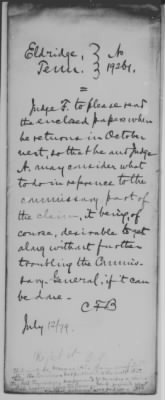 Eldridge, } No
Tenn. } 19261.
=
Judge F. to please read
the enclosed papers when
he returns in October
next, so that he and Judge
A. may consider what
to do in reference to the
commissary part of
the claim, it being, of
course, desirable to get
along without further
troubling the Commis-
sary-General, if it can
be done.
C F B
July 12/79.